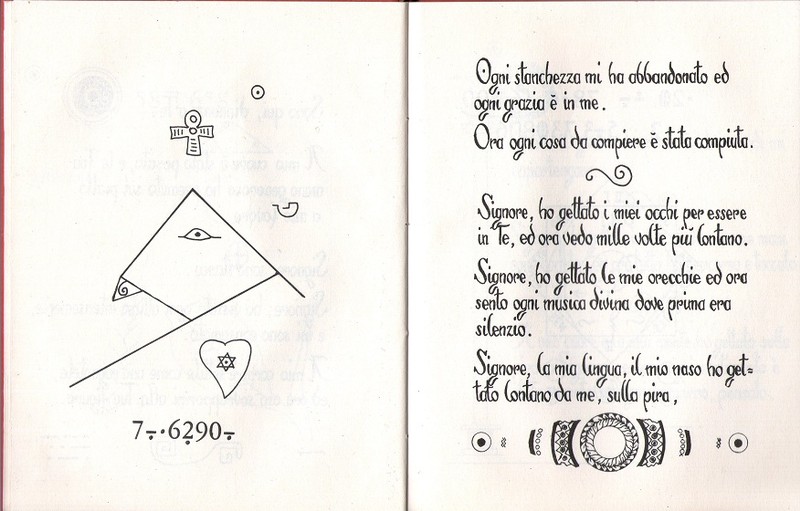 7-.·6290-.
Ogni stanchezza mi ha abbandonato ed
ogni grazia è in me.
Ora ogni cosa da compiere è stata compiuta.
Signore, ho gettato i miei occhi per essere
in Te, ed ora vedo mille volte più lontano.
Signore, ho gettato le mie orecchie ed ora
sento ogni musica divina dove prima era
silenzio.
Signore, la mia lingua, il mio naso ho get=
tato lontano da me, sulla pira,